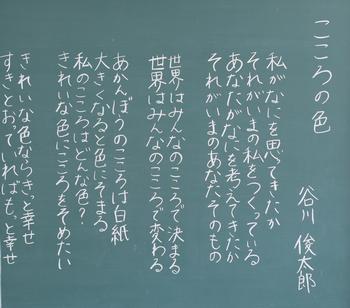 こころの色
谷川 俊太郎
私がなにを思ってきたか
それがいまの私をつくっている
あなたがなにを考えてきたか
それがいまのあなたそのもの
世界はみんなのこころで決まる
世界はみんなのこころで変わる
あかんぼうのこころは白紙
大きくなると色にそまる
私のこころはどんな色?
きれいな色にこころをそめたい
きれいな色ならきっと幸せ
すきとおっていればもっと幸せ